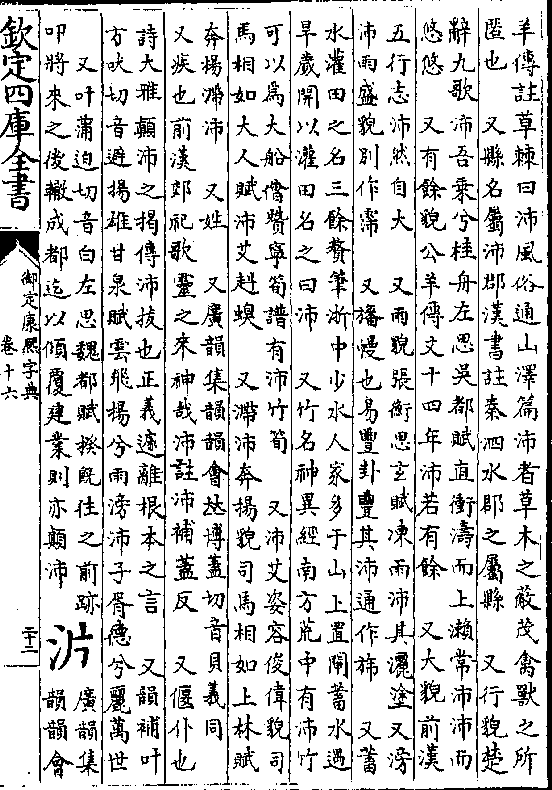 羊傳註草棘曰沛風俗通山澤篇沛者草木之蔽茂禽獸之所
匿也　又縣名屬沛郡漢書註秦泗水郡之屬縣　又行貌楚
辭九歌沛吾乘兮桂舟左思吳都賦直衝濤而上瀨常沛沛而
悠悠　又有餘貌公羊傳文十四年沛若有餘　又大貌前漢
五行志沛然自大　又雨貌張衡思玄賦凍雨沛其灑塗又滂
沛雨盛貌別作霈　又旛幔也易豐卦豐其沛通作旆　又蓄
水灌田之名三餘贅筆浙中少水人家多于山上置閘蓄水遇
旱歲開以灌田名之曰沛　又竹名神異經南方荒中有沛竹
可以為大船僧贊寧筍譜有沛竹筍　又沛艾姿容俊偉貌司
馬相如大人賦沛艾赳螑　又滂沛奔揚貌司馬相如上林賦
奔揚滯沛　又姓　又廣韻集韻韻會𠀤博蓋切音貝義同
又疾也前漢郊祀歌靈之來神哉沛註沛補蓋反　又偃仆也
詩大雅顛沛之揭傳沛拔也正義遽離根本之言　又韻補叶
方吠切音避揚雄甘泉賦雲飛揚兮雨滂沛于胥德兮麗萬世
又叶蒲迫切音白左思魏都賦揆旣往之前跡
叩將來之後轍成都迄以傾覆建業則亦顛沛
㳎
廣韻集
韻韻會
欽定四庫全書
御定康熙字典
卷十六
二十二